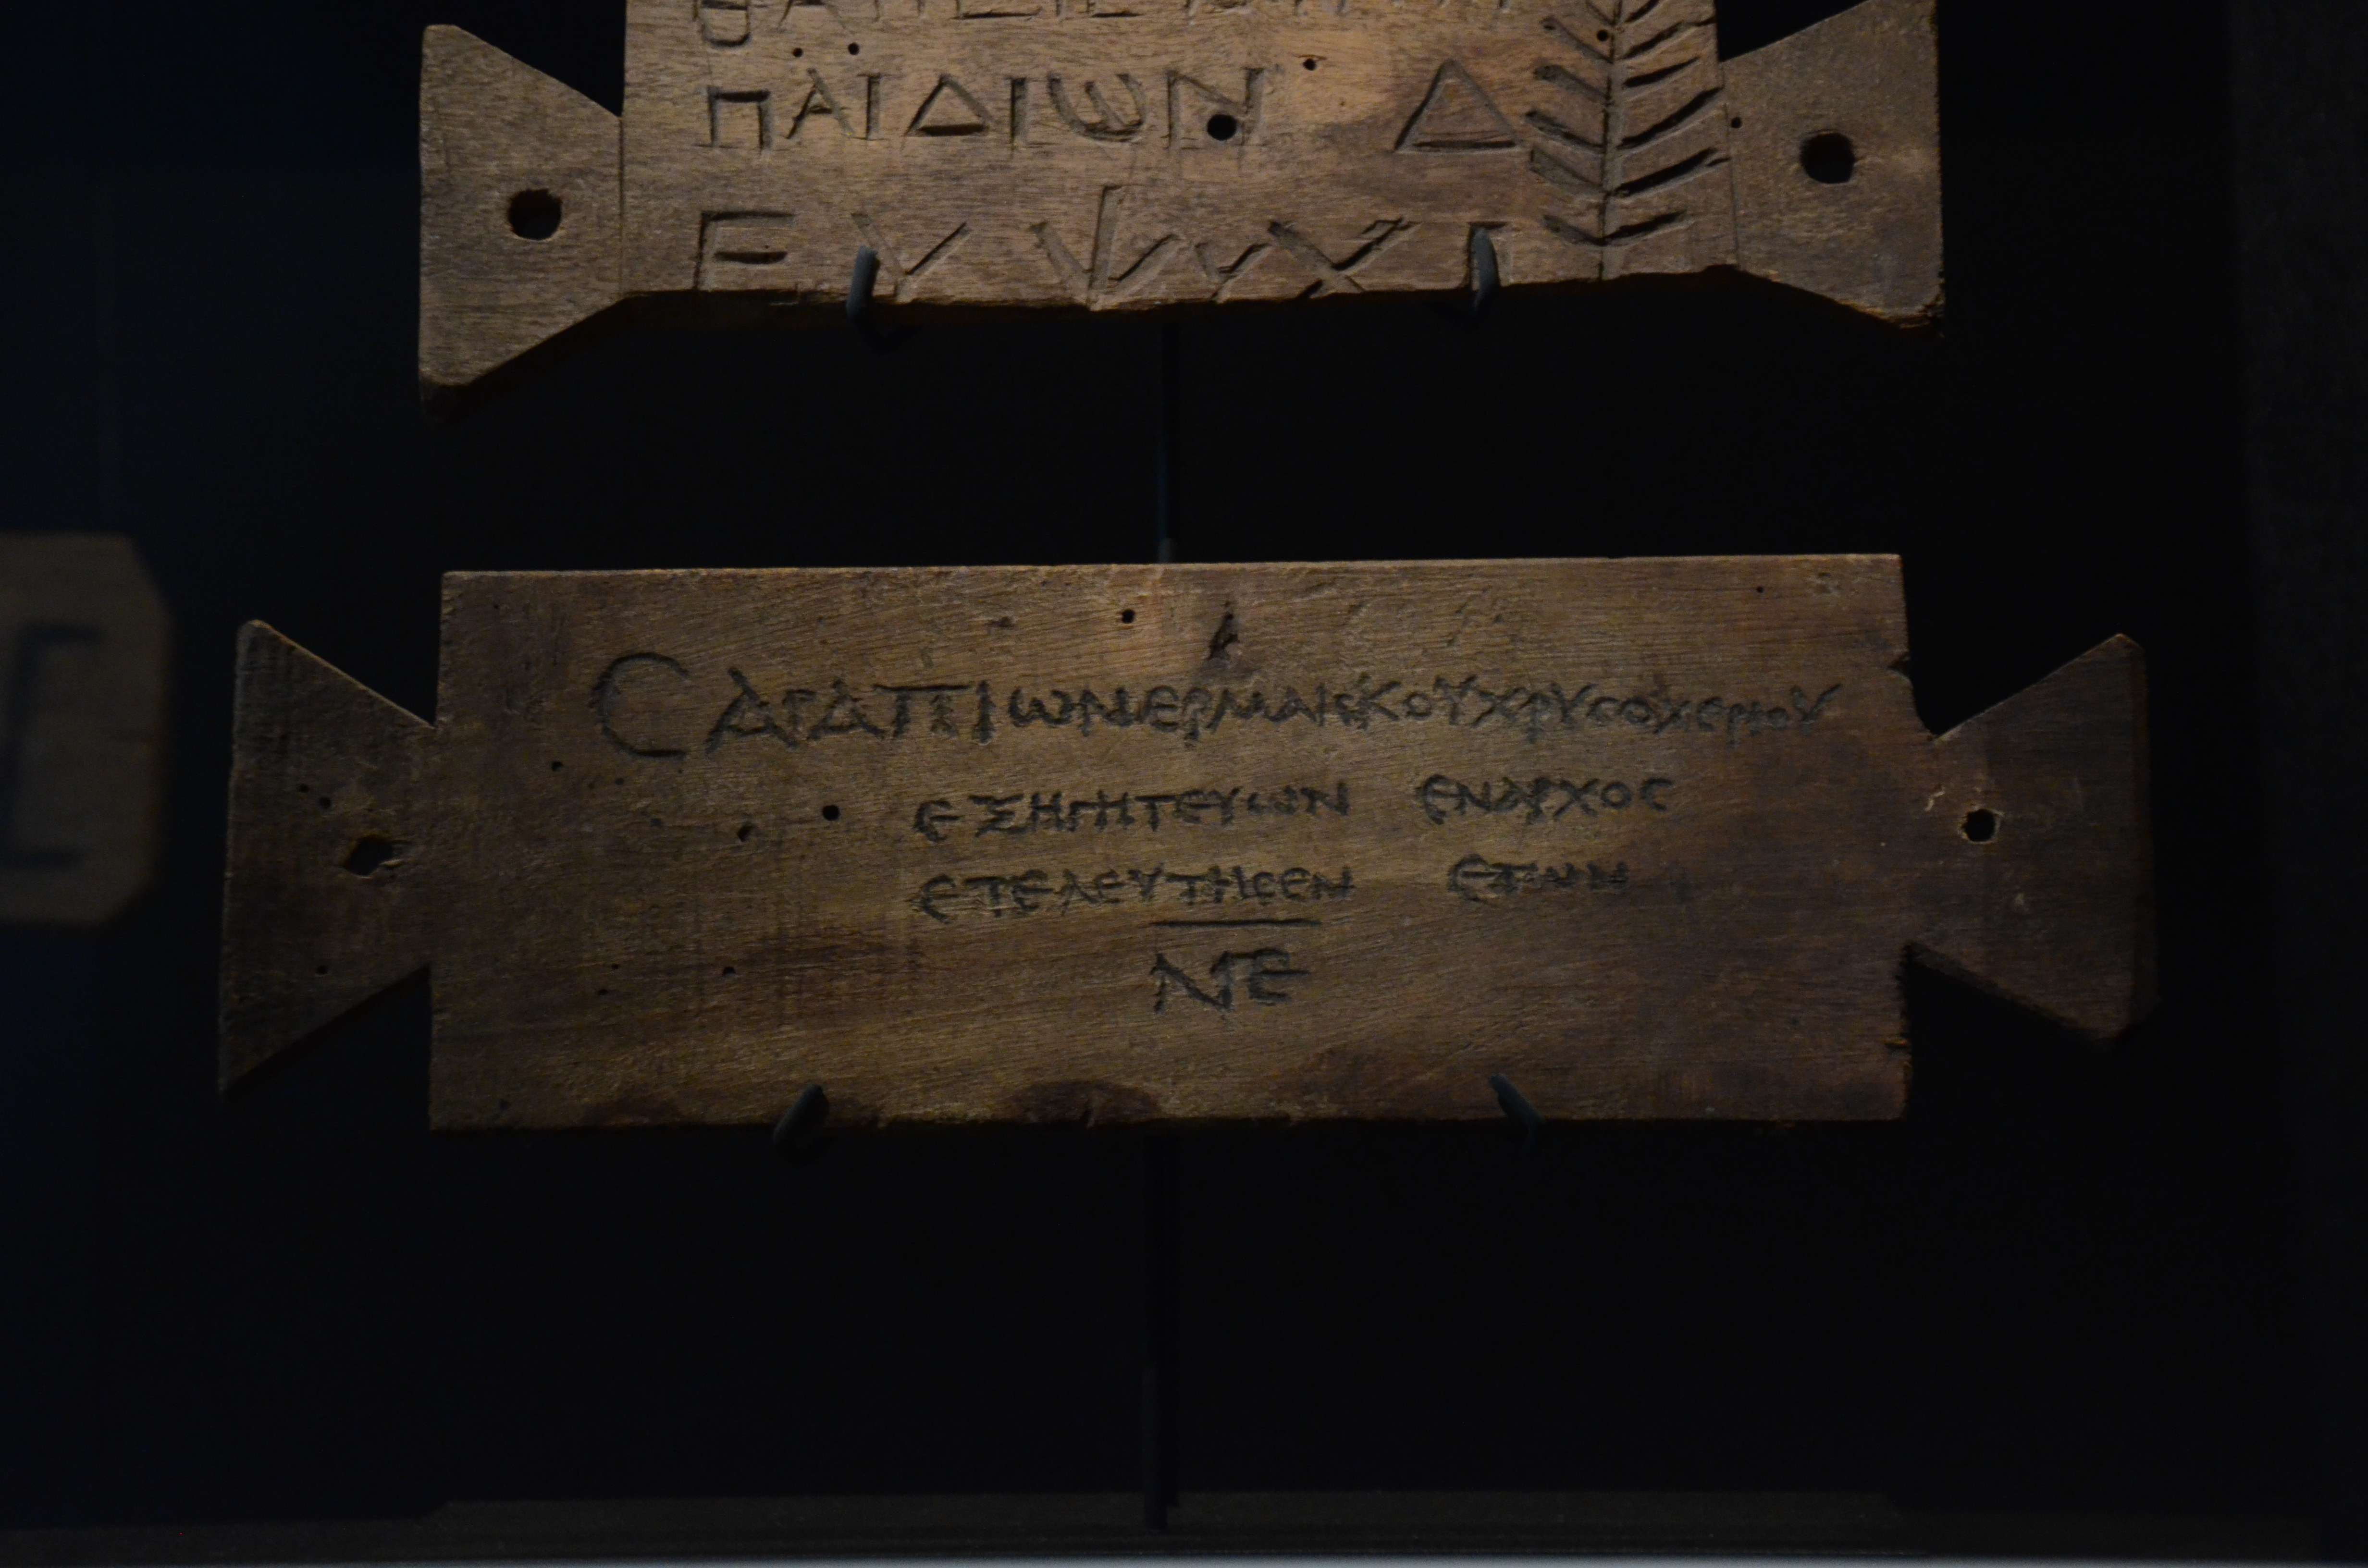 ΠΑΙΔΙΩΝ Δ
ΕΥΨΥΧΙ
CΑΡΑΠΙΩΝΕΡΜΑΙΣΚΟΥΧΡΥCΟΧΕΡΙΟΥ
ΕΞΗΓΗΤΕΥΩΝ ΕΝΑΡΧΟC
ΕΤΕΛΕΥΤΗCΕΝ ΕΤΩΝ
ΝΕ